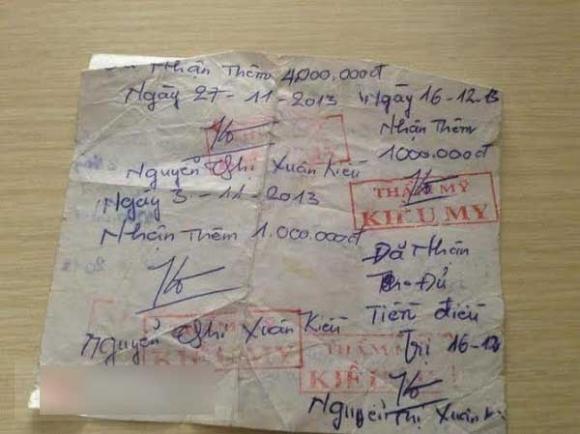 Đã Nhận Thêm 4.000.000đ
Ngày 27-11-2013
Nguyễn Thị Xuân Kiều
Ngày 3-11-2013
Nhận Thêm 1.000.000đ
Nguyễn Thị Xuân Kiều
Ngày 16-12-13
Nhận Thêm
1000.000đ
THẨM MỸ
KIỀU MY
Đã Nhận
Đủ
Tiền điều
Trị 16-12
Nguyễn Thị Xuân
THẨM
KIỀU MY
KIỀU